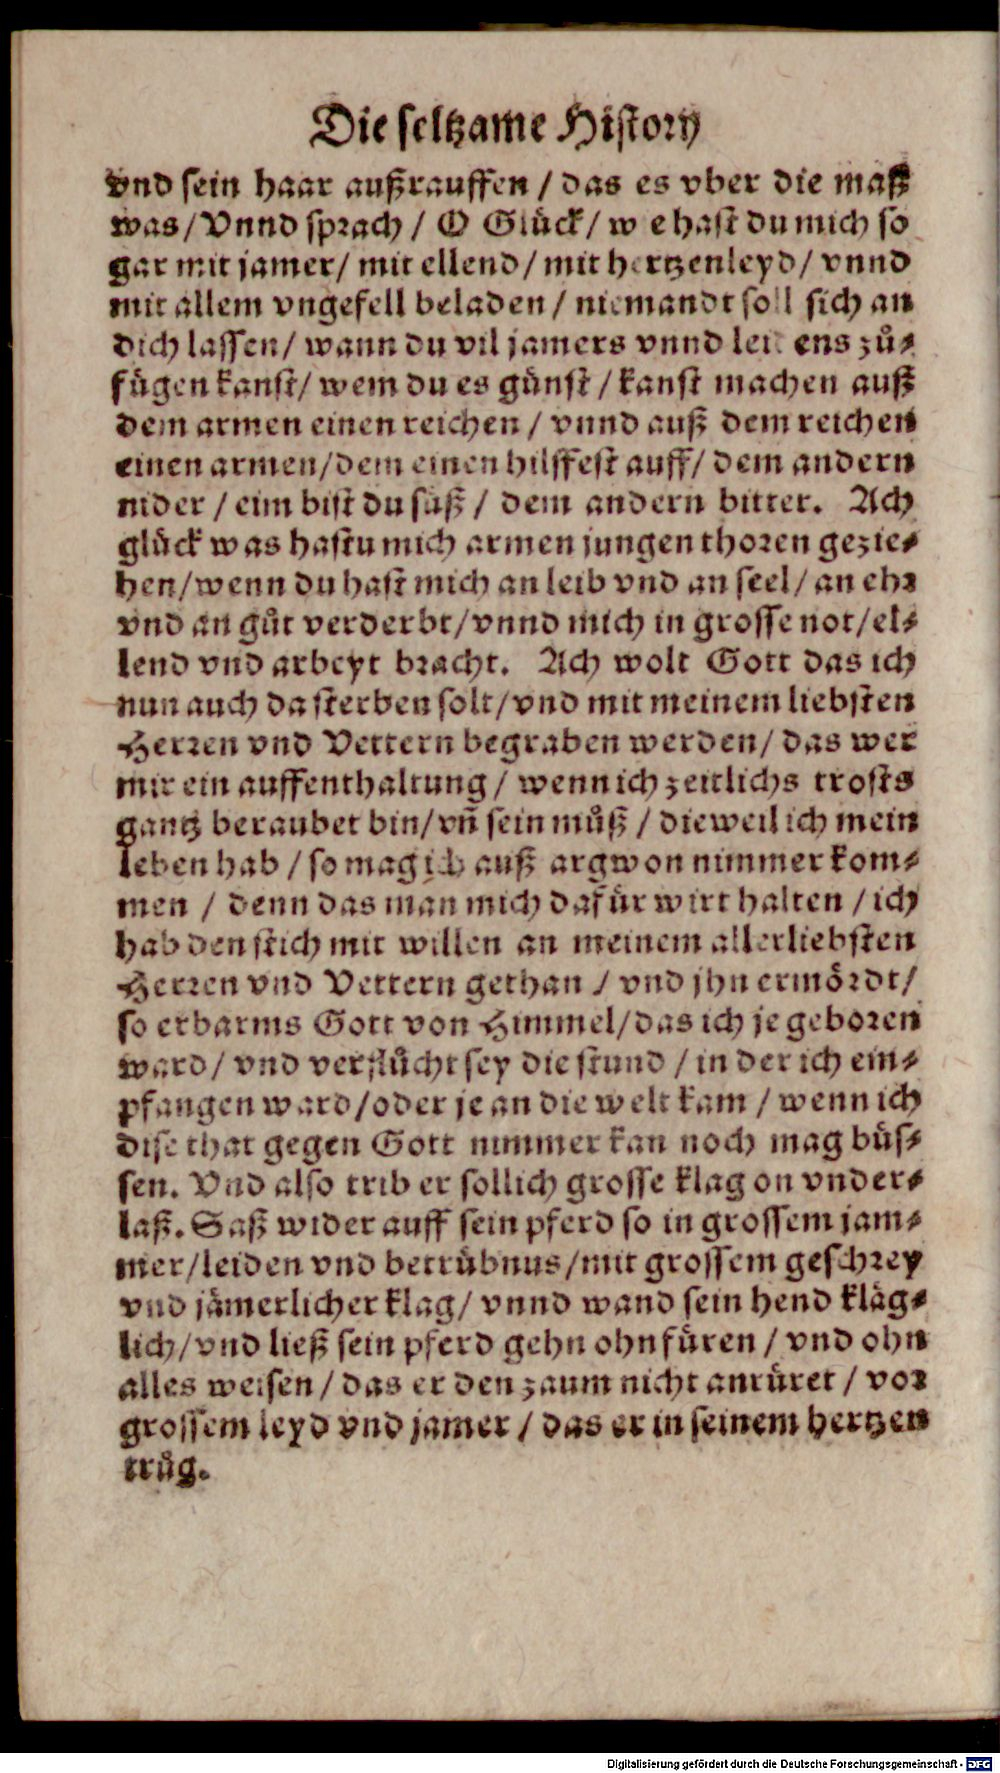 Die seltzame History
vnd sein haar außrauffen / das es vber die maß
was / Vnnd sprach / O Glück / w e hast du mich so
gar mit jamer / mit ellend / mit hertzenleyd / vnnd
mit allem vngefell beladen / niemandt soll sich an
dich lassen / wann du vil jamers vnnd leidens zuͦ⸗
fügen kanst / wem du es günst / kanst machen auß
dem armen einen reichen / vnnd auß dem reichen
einen armen / dem einen hilffest auff / dem andern
nider / eim bist du süß / dem andern bitter. Ach
glück was hastu mich armen jungen thoren gezie⸗
hen / wenn du hast mich an leib vnd an seel / an ehr
vnd an guͦt verderbt / vnnd mich in grosse not / el⸗
lend vnd arbeyt bracht. Ach wolt Gott das ich
nun auch da sterben solt / vnd mit meinem liebsten
Herren vnd Vettern begraben werden / das wer
mir ein auffenthaltung / wenn ich zeitlichs trosts
gantz beraubet bin / vñ sein muͦß / dieweil ich mein
leben hab / so mag ich auß argwon nimmer kom⸗
men / denn das man mich dafür wirt halten / ich
hab den stich mit willen an meinem allerliebsten
Herren vnd Vettern gethan / vnd jhn ermördt /
so erbarms Gott von Himmel / das ich je geboren
ward / vnd verfluͦcht sey die stund / in der ich ein⸗
pfangen ward / oder je an die welt kam / wenn ich
dise that gegen Gott nimmer kan noch mag büs⸗
sen. Vnd also trib er sollich grosse klag on vnder⸗
laß. Saß wider auff sein pferd so in grossem jam⸗
mer / leiden vnd betrübnus / mit grossem geschrey
vnd jämerlicher klag / vnnd wand sein hend kläg⸗
lich / vnd ließ sein pferd gehn ohn füren / vnd ohn
alles weisen / das er den zaum nicht anrüret / vor
grossem leyd vnd jamer / das er in seinem hertzen
truͦg.
Digitalisierung gefördert durch die Deutsche Forschungsgemeinschaft - DFG